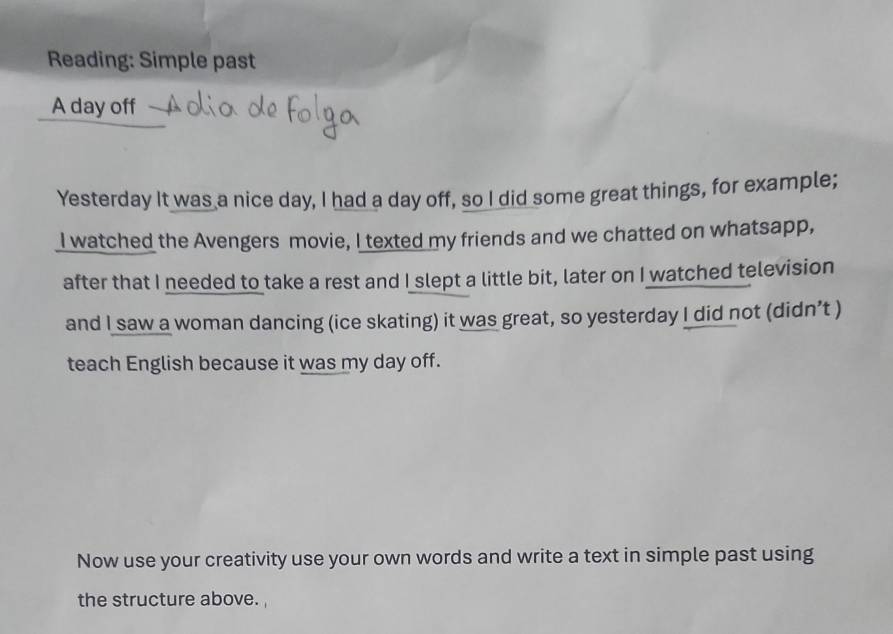 Reading: Simple past
A day off – A dia de Folga
Yesterday It was a nice day, I had a day off, so I did some great things, for example;
I watched the Avengers movie, I texted my friends and we chatted on whatsapp,
after that I needed to take a rest and I slept a little bit, later on I watched television
and I saw a woman dancing (ice skating) it was great, so yesterday I did not (didn't )
teach English because it was my day off.
Now use your creativity use your own words and write a text in simple past using
the structure above.